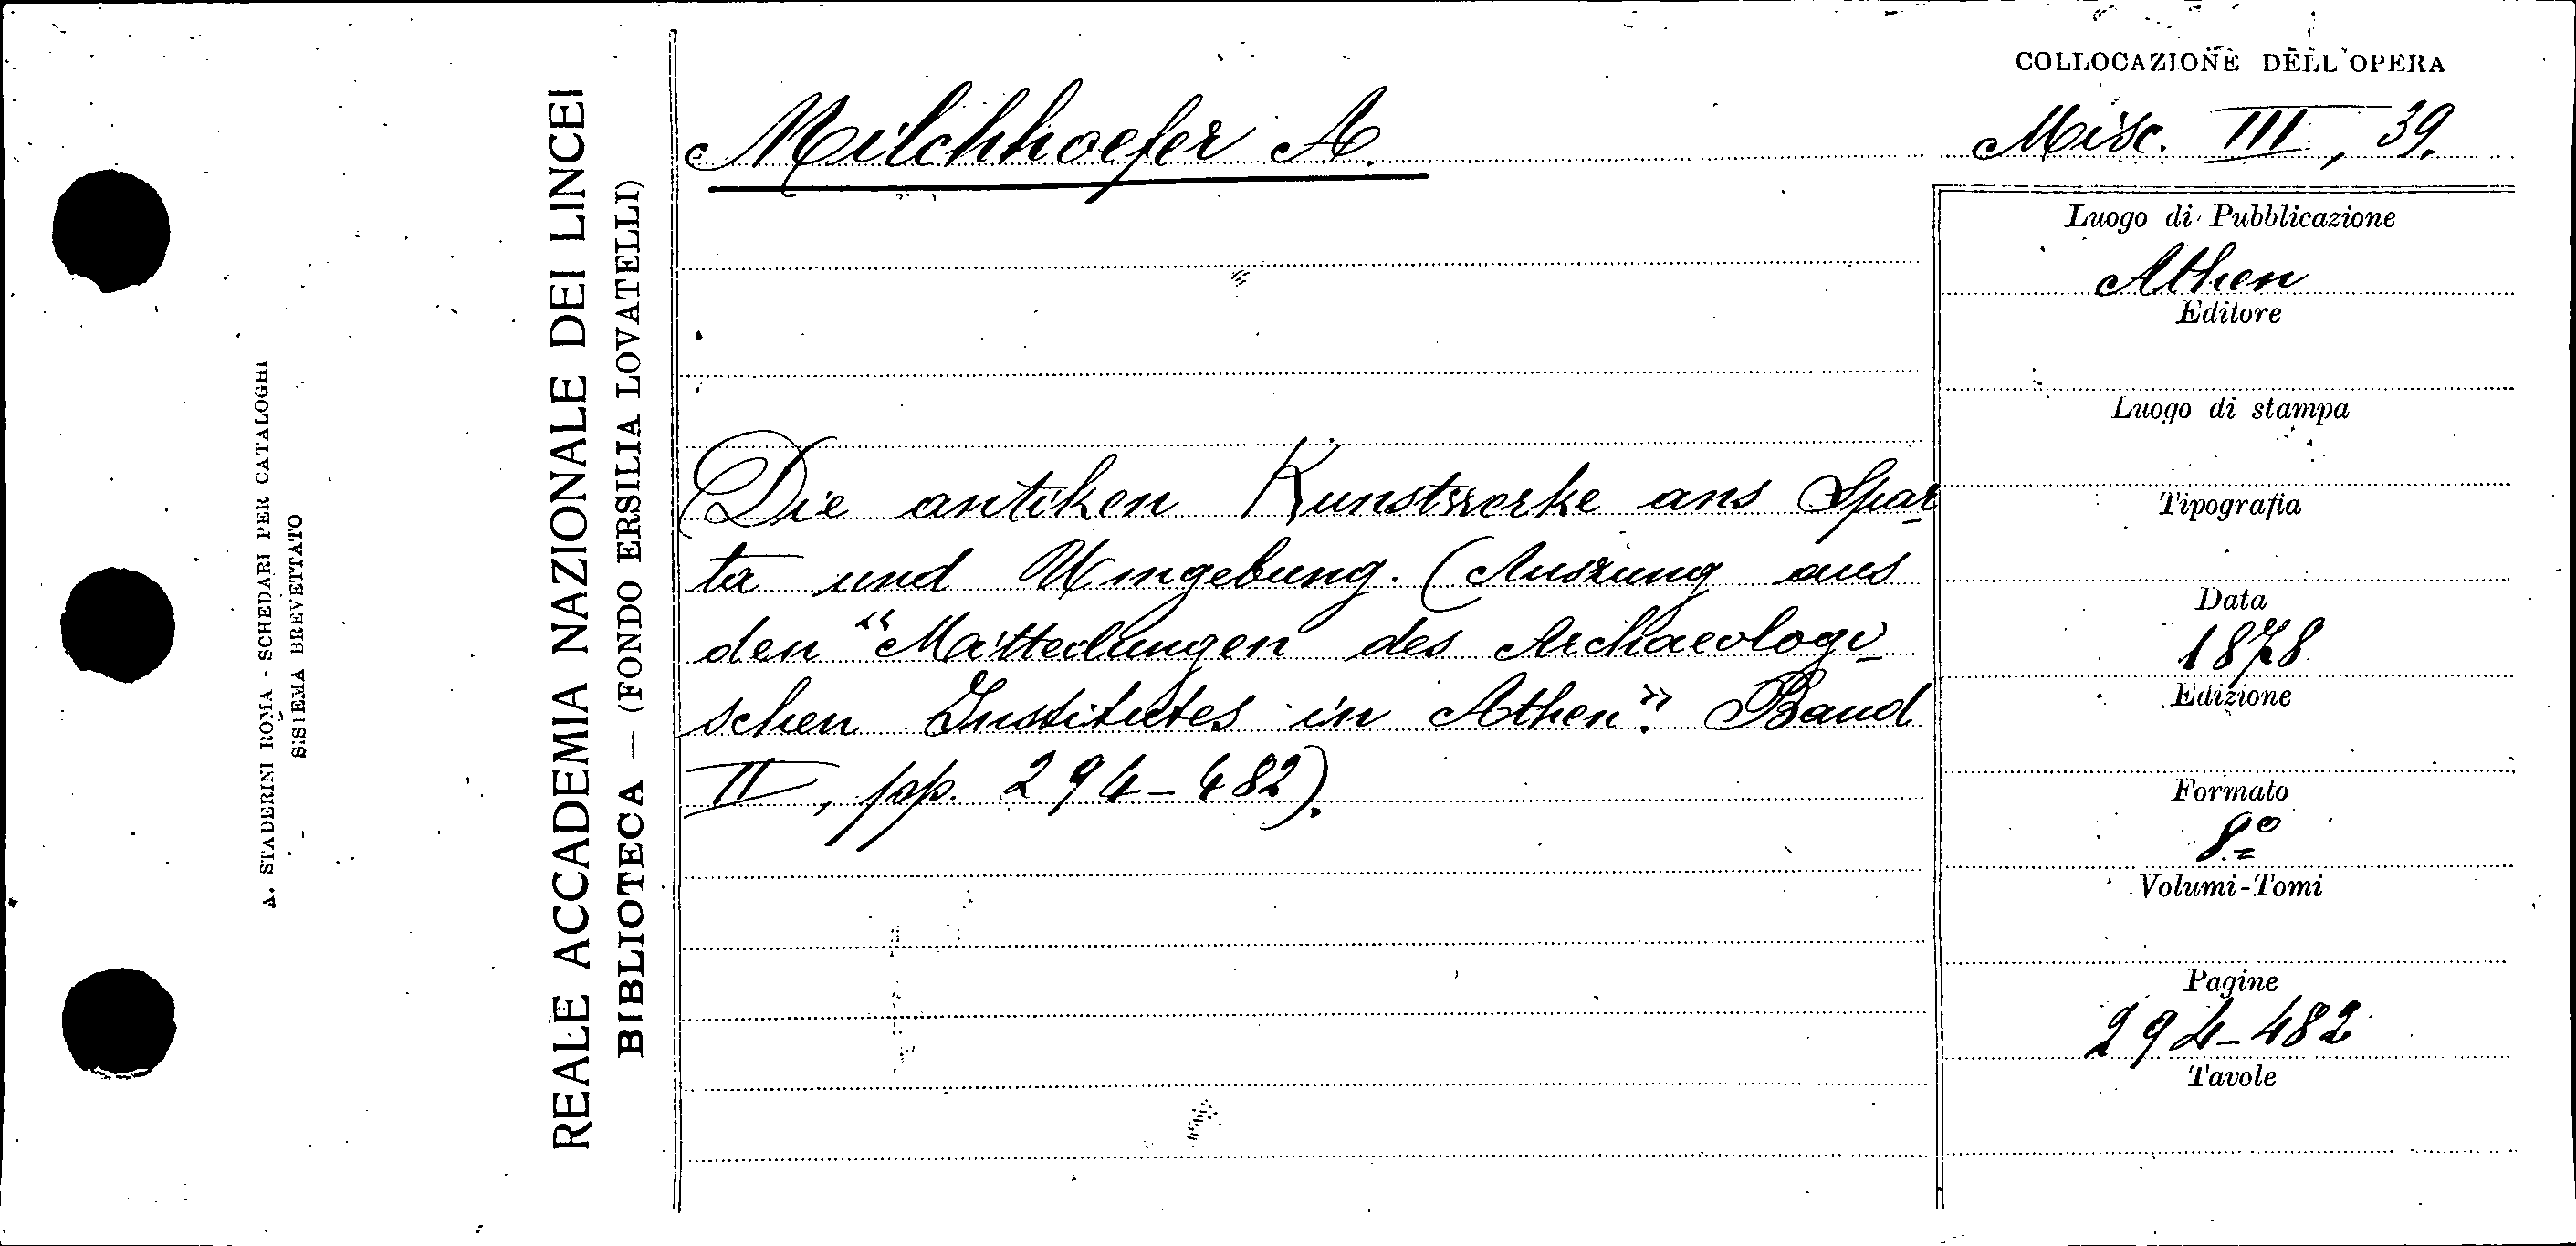 A. STADERINI ROMA - SCHEDARI PER CATALOGHI
SISTEMA BREVETTATO
REALE ACCADEMIA NAZIONALE DEI LINCEI
BIBLIOTECA — (FONDO ERSILIA LOVATELLI)
Milchhoefer A.
COLLOCAZIONE DELL'OPERA
Misc. III, 39.
Die antiken Kunstwerke aus Spar-
ta und Umgebung. (Auszung aus
den "Mitteilungen des Archaeologi-
schen Institutes in Athen". Band
II, pp. 294-482).
Luogo di Pubblicazione
Athen
Editore
Luogo di stampa
Tipografia
Data
1878
Edizione
Formato
8º
Volumi-Tomi
Pagine
294-482
Tavole